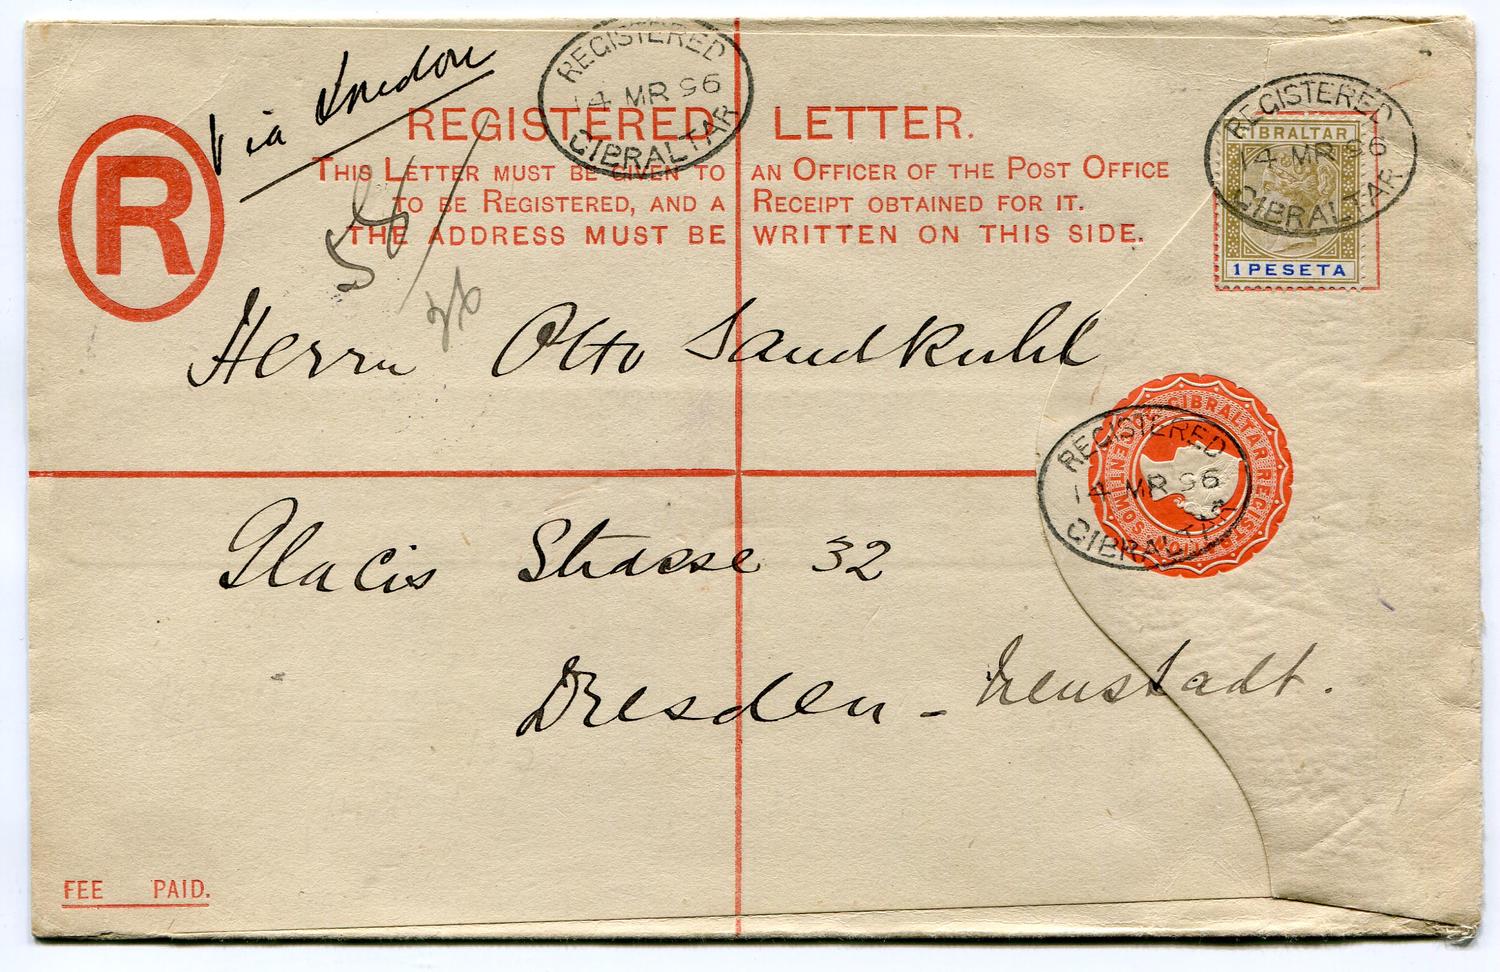 Via London
REGISTERED
14 MR 96
GIBRALTAR
REGISTERED LETTER.
R
THIS LETTER MUST BE GIVEN TO AN OFFICER OF THE POST OFFICE
TO BE REGISTERED, AND A RECEIPT OBTAINED FOR IT.
THE ADDRESS MUST BE WRITTEN ON THIS SIDE.
REGISTERED
14 MR 96
GIBRALTAR
GIBRALTAR
1 PESETA
Herrn Otto Sandkuhl
REGISTERED
14 MR 96
GIBRALTAR
GIBRALTAR REGISTRATION
Glacis Strasse 32
Dresden - Neustadt.
FEE PAID.